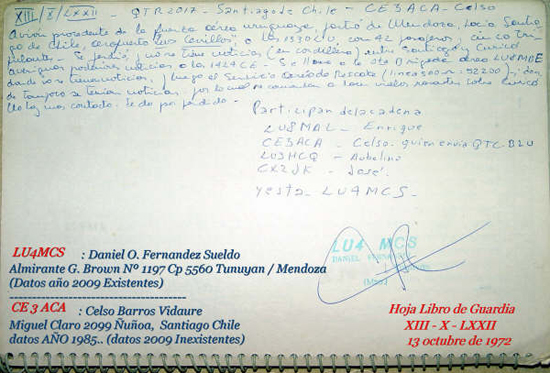 XIII/X/LXXII - QTR 2017 - Santiago de Chile - CE3ACA - Celso
Avión procedente de la fuerza aérea uruguaya, partió de Mendoza, hacia Santia
go de Chile, aeropuerto los Cerrillos, a las 1330 CU, con 42 pasajeros, cinco tri
pulante. Se perdió, no se tiene noticias (en cordillera) entre Santiago y Curicó
noticias a las 1424 CE - Se llamó a la 4ta Brigada aérea LU8MDE
no tienen noticias, luego el Servicio Aéreo de Rescate (línea 500 nr: 92200)
tampoco se tenían noticias. por lo cual se comentan a los vuelos rasantes sobre Curicó
Se da por perdido.
Participan de la cadena
LU8MAL - Enrique
CE3ACA - Celso. quien envía QTC. BLU
LU3HCQ - Aubelino
CX2JK - José.
y esta - LU4MCS -
LU4 MCS
DANIEL
LU4MCS : Daniel O. Fernandez Sueldo
Almirante G. Brown Nº 1197 Cp 5560 Tunuyan / Mendoza
(Datos año 2009 Existentes)
CE 3 ACA : Celso Barros Vidaure
Miguel Claro 2099 Ñuñoa, Santiago Chile
datos AÑO 1985.. (datos 2009 Inexistentes)
Hoja Libro de Guardia
XIII - X - LXXII
13 octubre de 1972